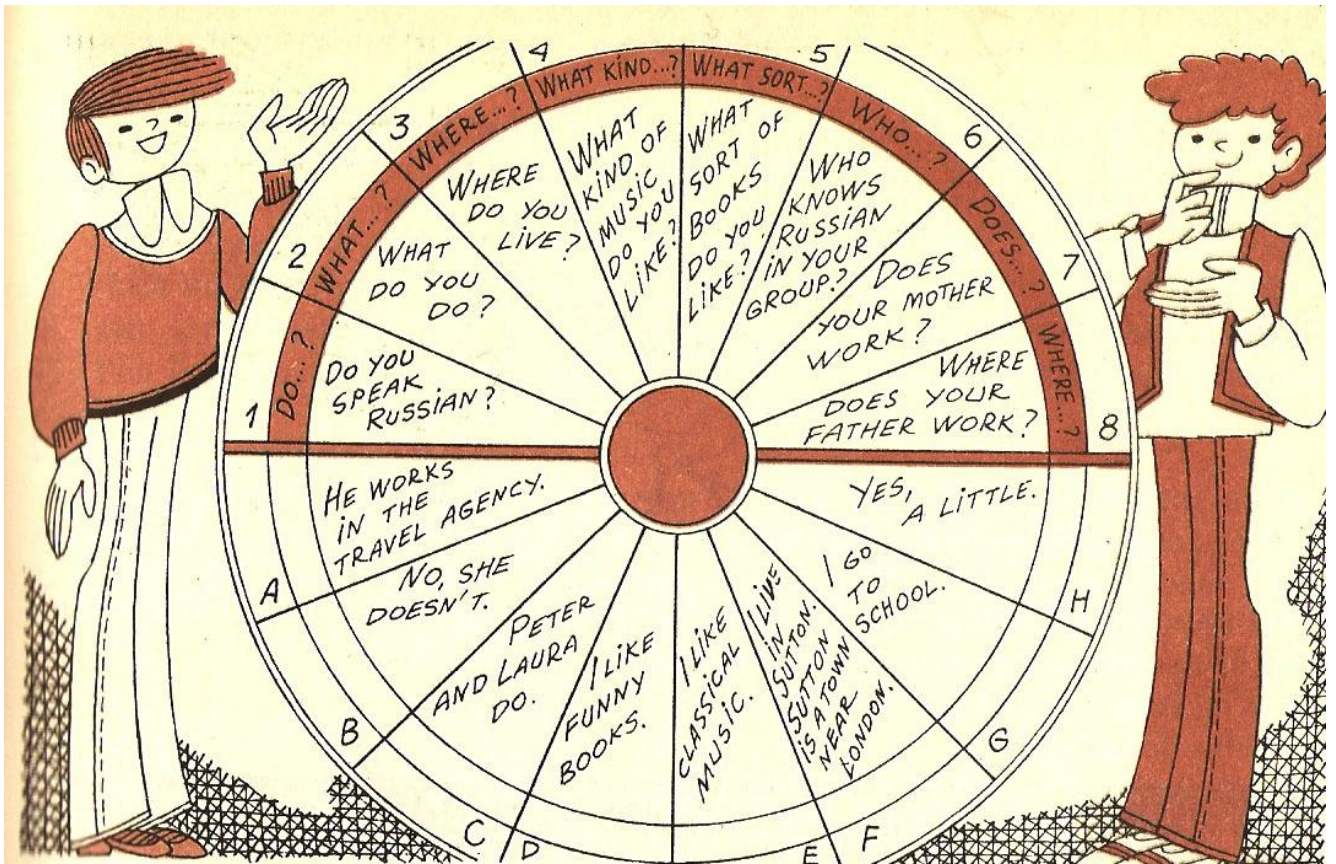 1
DO...?
DO YOU
SPEAK
RUSSIAN?
2
WHAT...?
WHAT
DO YOU
DO?
3
WHERE...?
WHERE
DO YOU
LIVE?
4
WHAT KIND...?
WHAT
KIND OF
MUSIC
DO YOU
LIKE?
WHAT SORT...?
5
WHAT
SORT OF
BOOKS
DO YOU
LIKE?
WHO...?
6
WHO
KNOWS
RUSSIAN
IN YOUR
GROUP?
DOES...?
7
DOES
YOUR MOTHER
WORK?
WHERE...?
8
WHERE
DOES YOUR
FATHER WORK?
A
HE WORKS
IN THE
TRAVEL AGENCY.
B
NO, SHE
DOESN'T.
C
PETER
AND LAURA
DO.
D
I LIKE
FUNNY
BOOKS.
E
I LIKE
CLASSICAL
MUSIC.
F
I LIVE
IN
SUTTON.
SUTTON
IS A TOWN
NEAR
LONDON.
G
I GO
TO
SCHOOL.
H
YES,
A LITTLE.